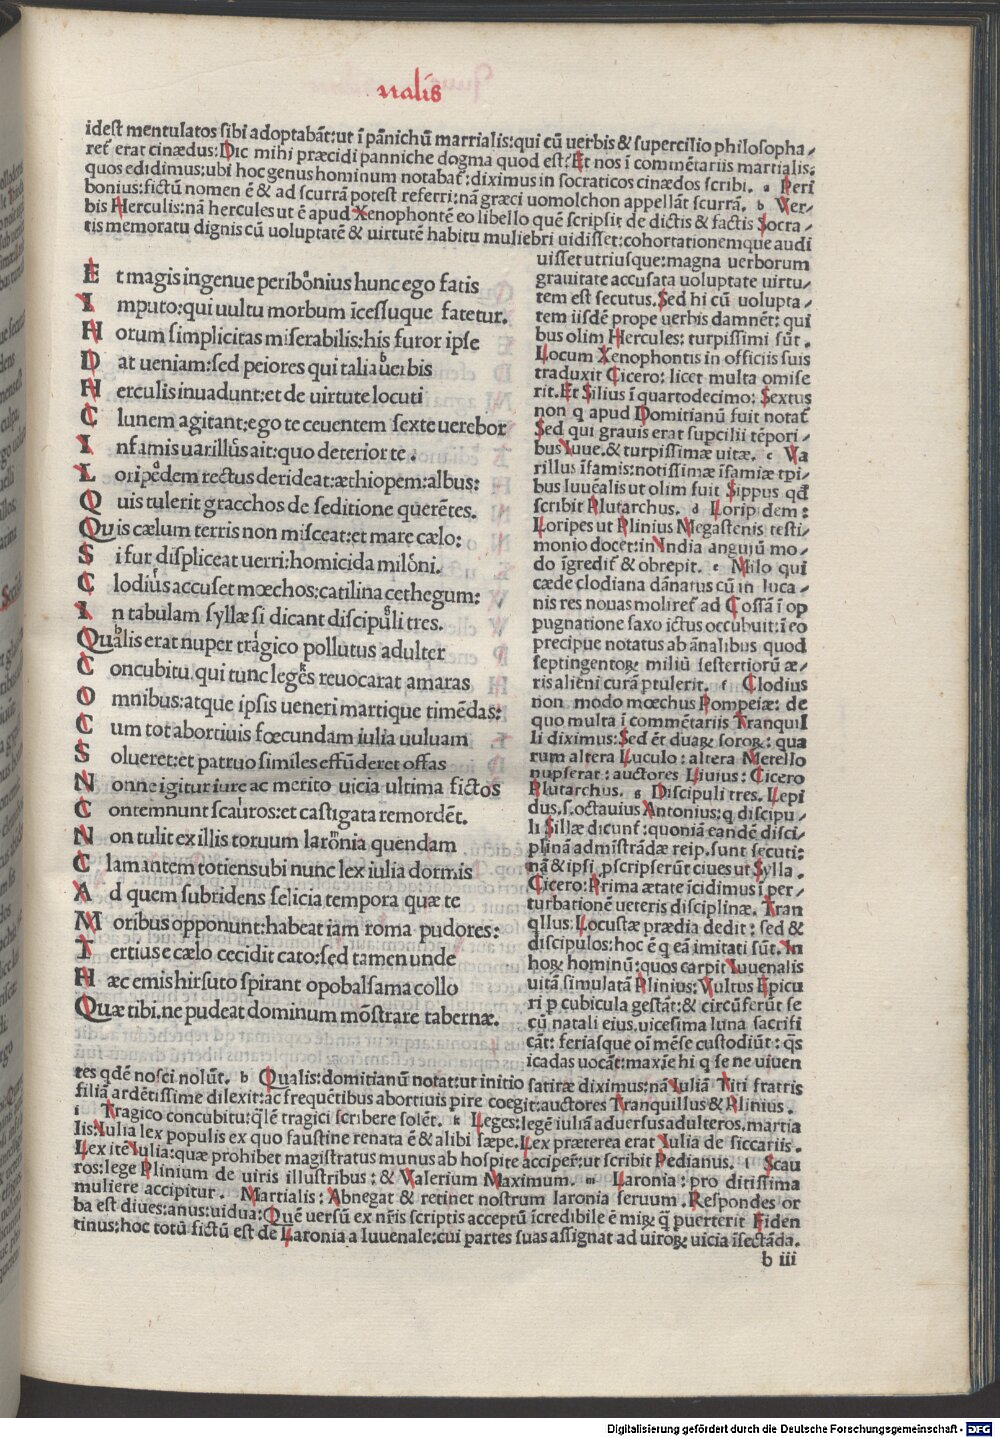 nalis
idest mentulatos sibi adoptabāt:ut ī pānichū marrialis:qui cū uerbis & supercilio philosopha/
ret erat cinædus:Dic mihi præcidi panniche dogma quod est?Et nos ī commētariis martialis:
quos edidimus:ubi hoc genus hominum notabat:diximus in socraticos cinædos scribi. a Peri
bonius:fictū nomen ē & ad scurrā potest referri:nā græci uomolchon appellāt scurrā. b Ver/
bis Herculis:nā hercules ut ē apud Xenophontē eo libello quē scripsit de dictis & factis Socra/
tis memoratu dignis cū uoluptatē & uirtutē habitu muliebri uidisset:cohortationemque audi
uisset utriusque:magna uerborum
grauitate accusata uoluptate uirtu/
tem est secutus.Sed hi cū uolupta/
tem iisdē prope uerbis damnēt: qui
bus olim Hercules: turpissimi sūt.
Locum Xenophontis in officiis suis
traduxit Cicero: licet multa omise
rit.Et Silius ī quartodecimo: Sextus
non q apud Domitianū fuit notat
Sed qui grauis erat supcilii tēpori/
bus Iuue.& turpissimæ uitæ. c Va
rillus īfamis:notissimæ īfamiæ tpi/
bus Iuuēalis ut olim fuit Sippus qđ
scribit Plutarchus. d Loripedem:
Loripes ut Plinius Megastenis testi/
monio docet:in India anguiū mo/
do īgredit & obrepit. e Milo qui
cæde clodiana dānatus cū in luca
nis res nouas moliret ad Cossā ī op
pugnatione saxo ictus occubuit:ī eo
precipue notatus ab ānalibus quod
septingentoꝝ miliū sestertiorū æ/
ris alieni curā ptulerit. f Clodius
non modo mœchus Pompeiæ: de
quo multa ī commētariis Tranquil
li diximus:Sed ēt duaꝝ soroꝝ: qua
rum altera Luculo: altera Metello
nupserat: auctores Liuius: Cicero
Plutarchus. g Discipuli tres. Lepi
dus.s.octauius Antonius:q discipu/
li Sillæ dicunt: quoniā eandē disci/
plinā admīstrādæ reip.sunt secuti:
nā & ipsi pscripserūt ciues ut Sylla.
Cicero:Prima ætate īcidimus ī per/
turbationē ueteris disciplinæ. Tran
qllus: Locustæ prædia dedit: sed &
discipulos:hoc ē q eā imitati sūt.In
hoꝝ hominū:quos carpit Iuuenalis
uitā simulatā Plinius: Vultus Epicu
ri p cubicula gestāt:& circūferūt se
cū natali eius.uicesima luna sacrifi
cāt: feriasque oī mēse custodiūt: qs
icadas uocāt:maxīe hi q se ne uiuen
E t magis ingenue peribonius hunc ego fatis
I mputo:qui uultu morbum īcessuque fatetur.
H orum simplicitas miserabilis:his furor ipse
D at ueniam:sed peiores qui talia uerbis
H erculis inuadunt:et de uirtute locuti
C lunem agitant:ego te ceuentem sexte uerebor
I nfamis uarillus ait:quo deterior te.
L oripedem rectus derideat:æthiopem:albus:
Q uis tulerit gracchos de seditione querētes.
Quis cælum terris non misceat:et mare cælo:
S i fur displiceat uerri:homicida miloni.
C lodius accuset mœchos:catilina cethegum:
I n tabulam syllæ si dicant discipuli tres.
Qualis erat nuper tragico pollutus adulter
C oncubitu.qui tunc leges reuocarat amaras
O mnibus:atque ipsis ueneri martique timēdas:
C um tot abortiuis fœcundam iulia uuluam
S olueret:et patruo similes effūderet offas
N onne igitur iure ac merito uicia ultima fictos
C ontemnunt scauros:et castigata remordēt.
N on tulit ex illis toruum laronia quendam
C lamantem totiens:ubi nunc lex iulia dormis
A d quem subridens felicia tempora quæ te
M oribus opponunt:habeat iam roma pudores:
T ertius e cælo cecidit cato:sed tamen unde
H æc emis hirsuto spirant opobalsama collo
Quæ tibi.ne pudeat dominum mōstrare tabernæ.
tes qdē nosci nolūt. h Qualis:domitianū notat:ut initio satiræ diximus:nā Iuliā Titi fratris
filiā ardētissime dilexit:ac frequētibus abortiuis pire coegit:auctores Tranquillus & Plinius.
i Tragico concubitu:qlē tragici scribere solēt. k Leges:legē iuliā aduersus adulteros.martia
lis:Iulia lex populis ex quo faustine renata ē & alibi sæpe.Lex præterea erat Iulia de siccariis.
Lex itē Iulia:quæ prohibet magistratus munus ab hospite acciper:ut scribit Pedianus. l Scau
ros:lege Plinium de uiris illustribus: & Valerium Maximum. m Laronia: pro ditissima
muliere accipitur. Martialis: Abnegat & retinet nostrum laronia seruum. Respondes or
ba est diues:anus:uidua:Quē uersū ex nris scriptis acceptū īcredibile ē miꝝ q puerterit Fiden
tinus:hoc totū fictū est de Laronia a Iuuenale:cui partes suas assignat ad uiroꝝ uicia īsectāda.
b iii
Digitalisierung gefördert durch die Deutsche Forschungsgemeinschaft - DFG